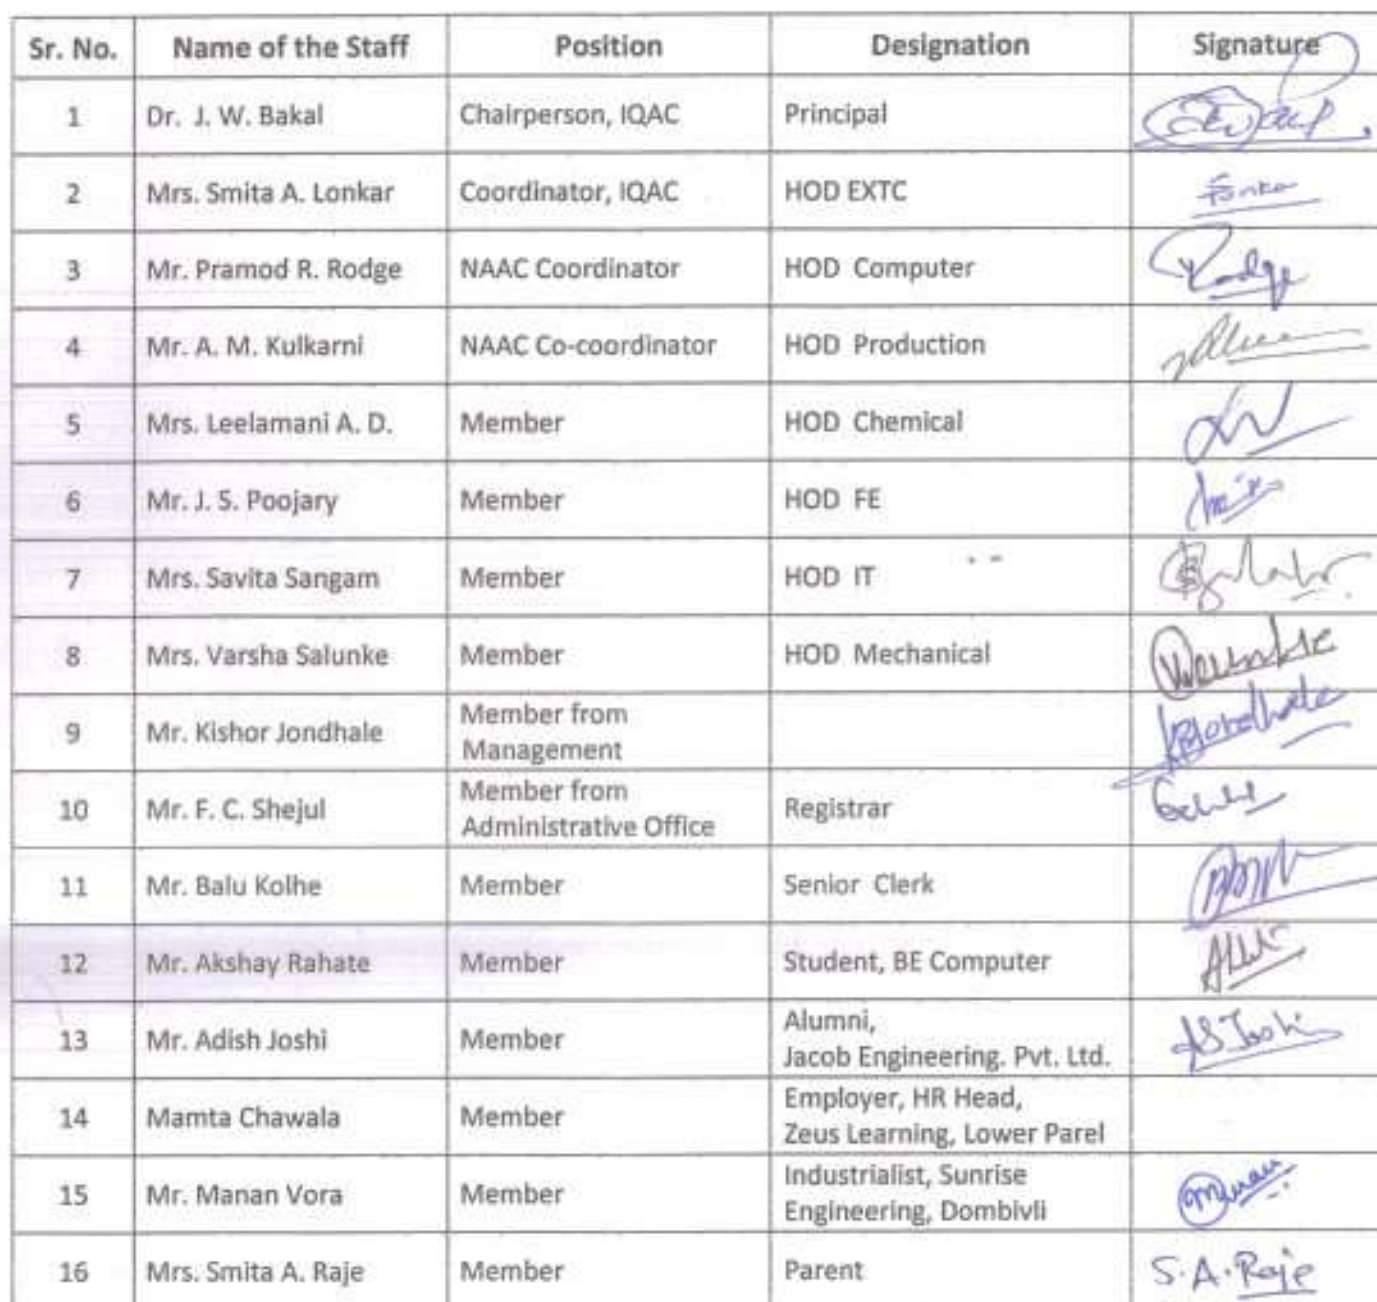 Sr. No. Name of the Staff Position Designation Signature
1 Dr. J. W. Bakal Chairperson, IQAC Principal
2 Mrs. Smita A. Lonkar Coordinator, IQAC HOD EXTC
3 Mr. Pramod R. Rodge NAAC Coordinator HOD Computer Rodge
4 Mr. A. M. Kulkarni NAAC Co-coordinator HOD Production
5 Mrs. Leelamani A. D. Member HOD Chemical
6 Mr. J. S. Poojary Member HOD FE
7 Mrs. Savita Sangam Member HOD IT
8 Mrs. Varsha Salunke Member HOD Mechanical
9 Mr. Kishor Jondhale Member from
Management
10 Mr. F. C. Shejul Member from
Administrative Office Registrar
11 Mr. Balu Kolhe Member Senior Clerk
12 Mr. Akshay Rahate Member Student, BE Computer
13 Mr. Adish Joshi Member Alumni,
Jacob Engineering. Pvt. Ltd. AS Joshi
14 Mamta Chawala Member Employer, HR Head,
Zeus Learning, Lower Parel
15 Mr. Manan Vora Member Industrialist, Sunrise
Engineering, Dombivli
16 Mrs. Smita A. Raje Member Parent S.A. Raje